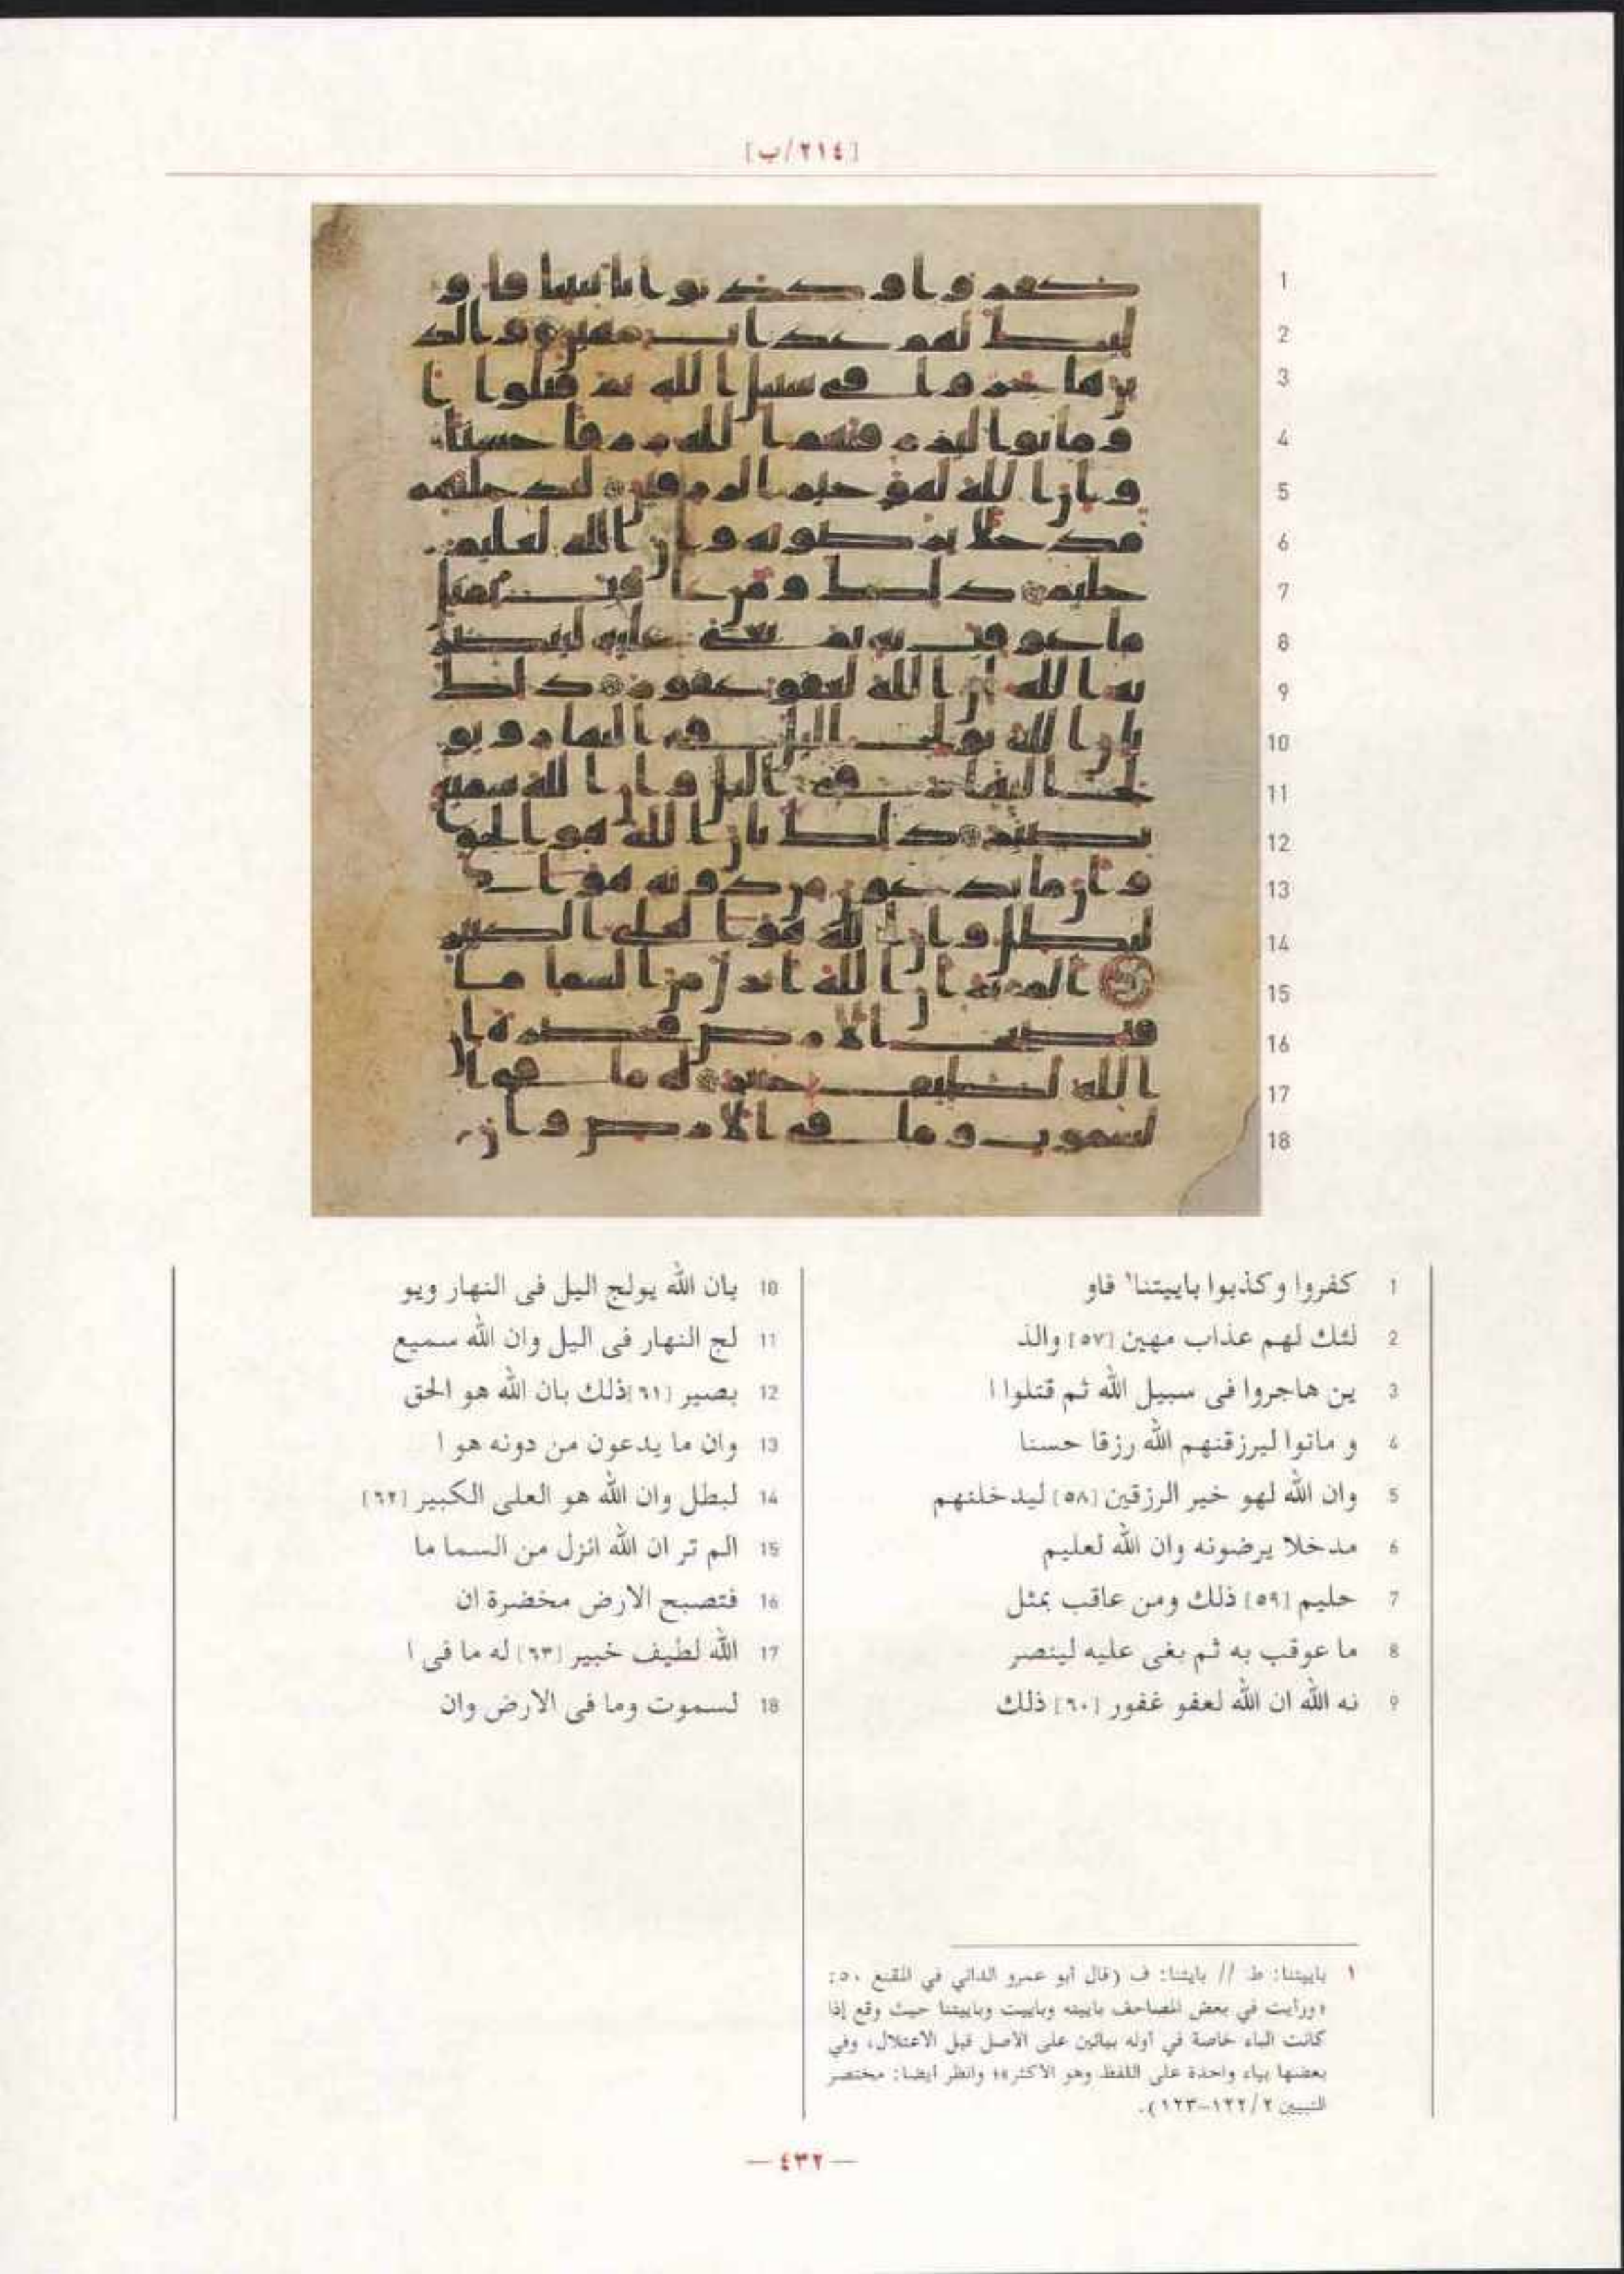 [٢١٤/ب]
1 كفروا وكذبوا باييتنا١ فاو
2 لئك لهم عذاب مهين [٥٧] والذ
3 ين هاجروا فى سبيل الله ثم قتلوا ا
4 و ماتوا ليرزقنهم الله رزقا حسنا
5 وان الله لهو خير الرزقين [٥٨] ليدخلنهم
6 مدخلا يرضونه وان الله لعليم
7 حليم [٥٩] ذلك ومن عاقب بمثل
8 ما عوقب به ثم بغى عليه لينصر
9 نه الله ان الله لعفو غفور [٦٠] ذلك
10 بان الله يولج اليل فى النهار ويو
11 لج النهار فى اليل وان الله سميع
12 بصير [٦١] ذلك بان الله هو الحق
13 وان ما يدعون من دونه هو ا
14 لبطل وان الله هو العلى الكبير [٦٢]
15 الم تر ان الله انزل من السما ما
16 فتصبح الارض مخضرة ان
17 الله لطيف خبير [٦٣] له ما فى ا
18 لسموت وما فى الارض وان
١ باييتنا: ط // بايتنا: ف (قال أبو عمرو الداني في المقنع ٥٠:
«ورأيت في بعض المصاحف باييته وباييت وباييتنا حيث وقع إذا
كانت الباء خاصة في أوله بيائين على الأصل قبل الاعتلال، وفي
بعضها بياء واحدة على اللفظ وهو الأكثر»؛ وانظر أيضا: مختصر
التبيين ٢/ ١٢٢–١٢٣).
— ٤٣٢ —